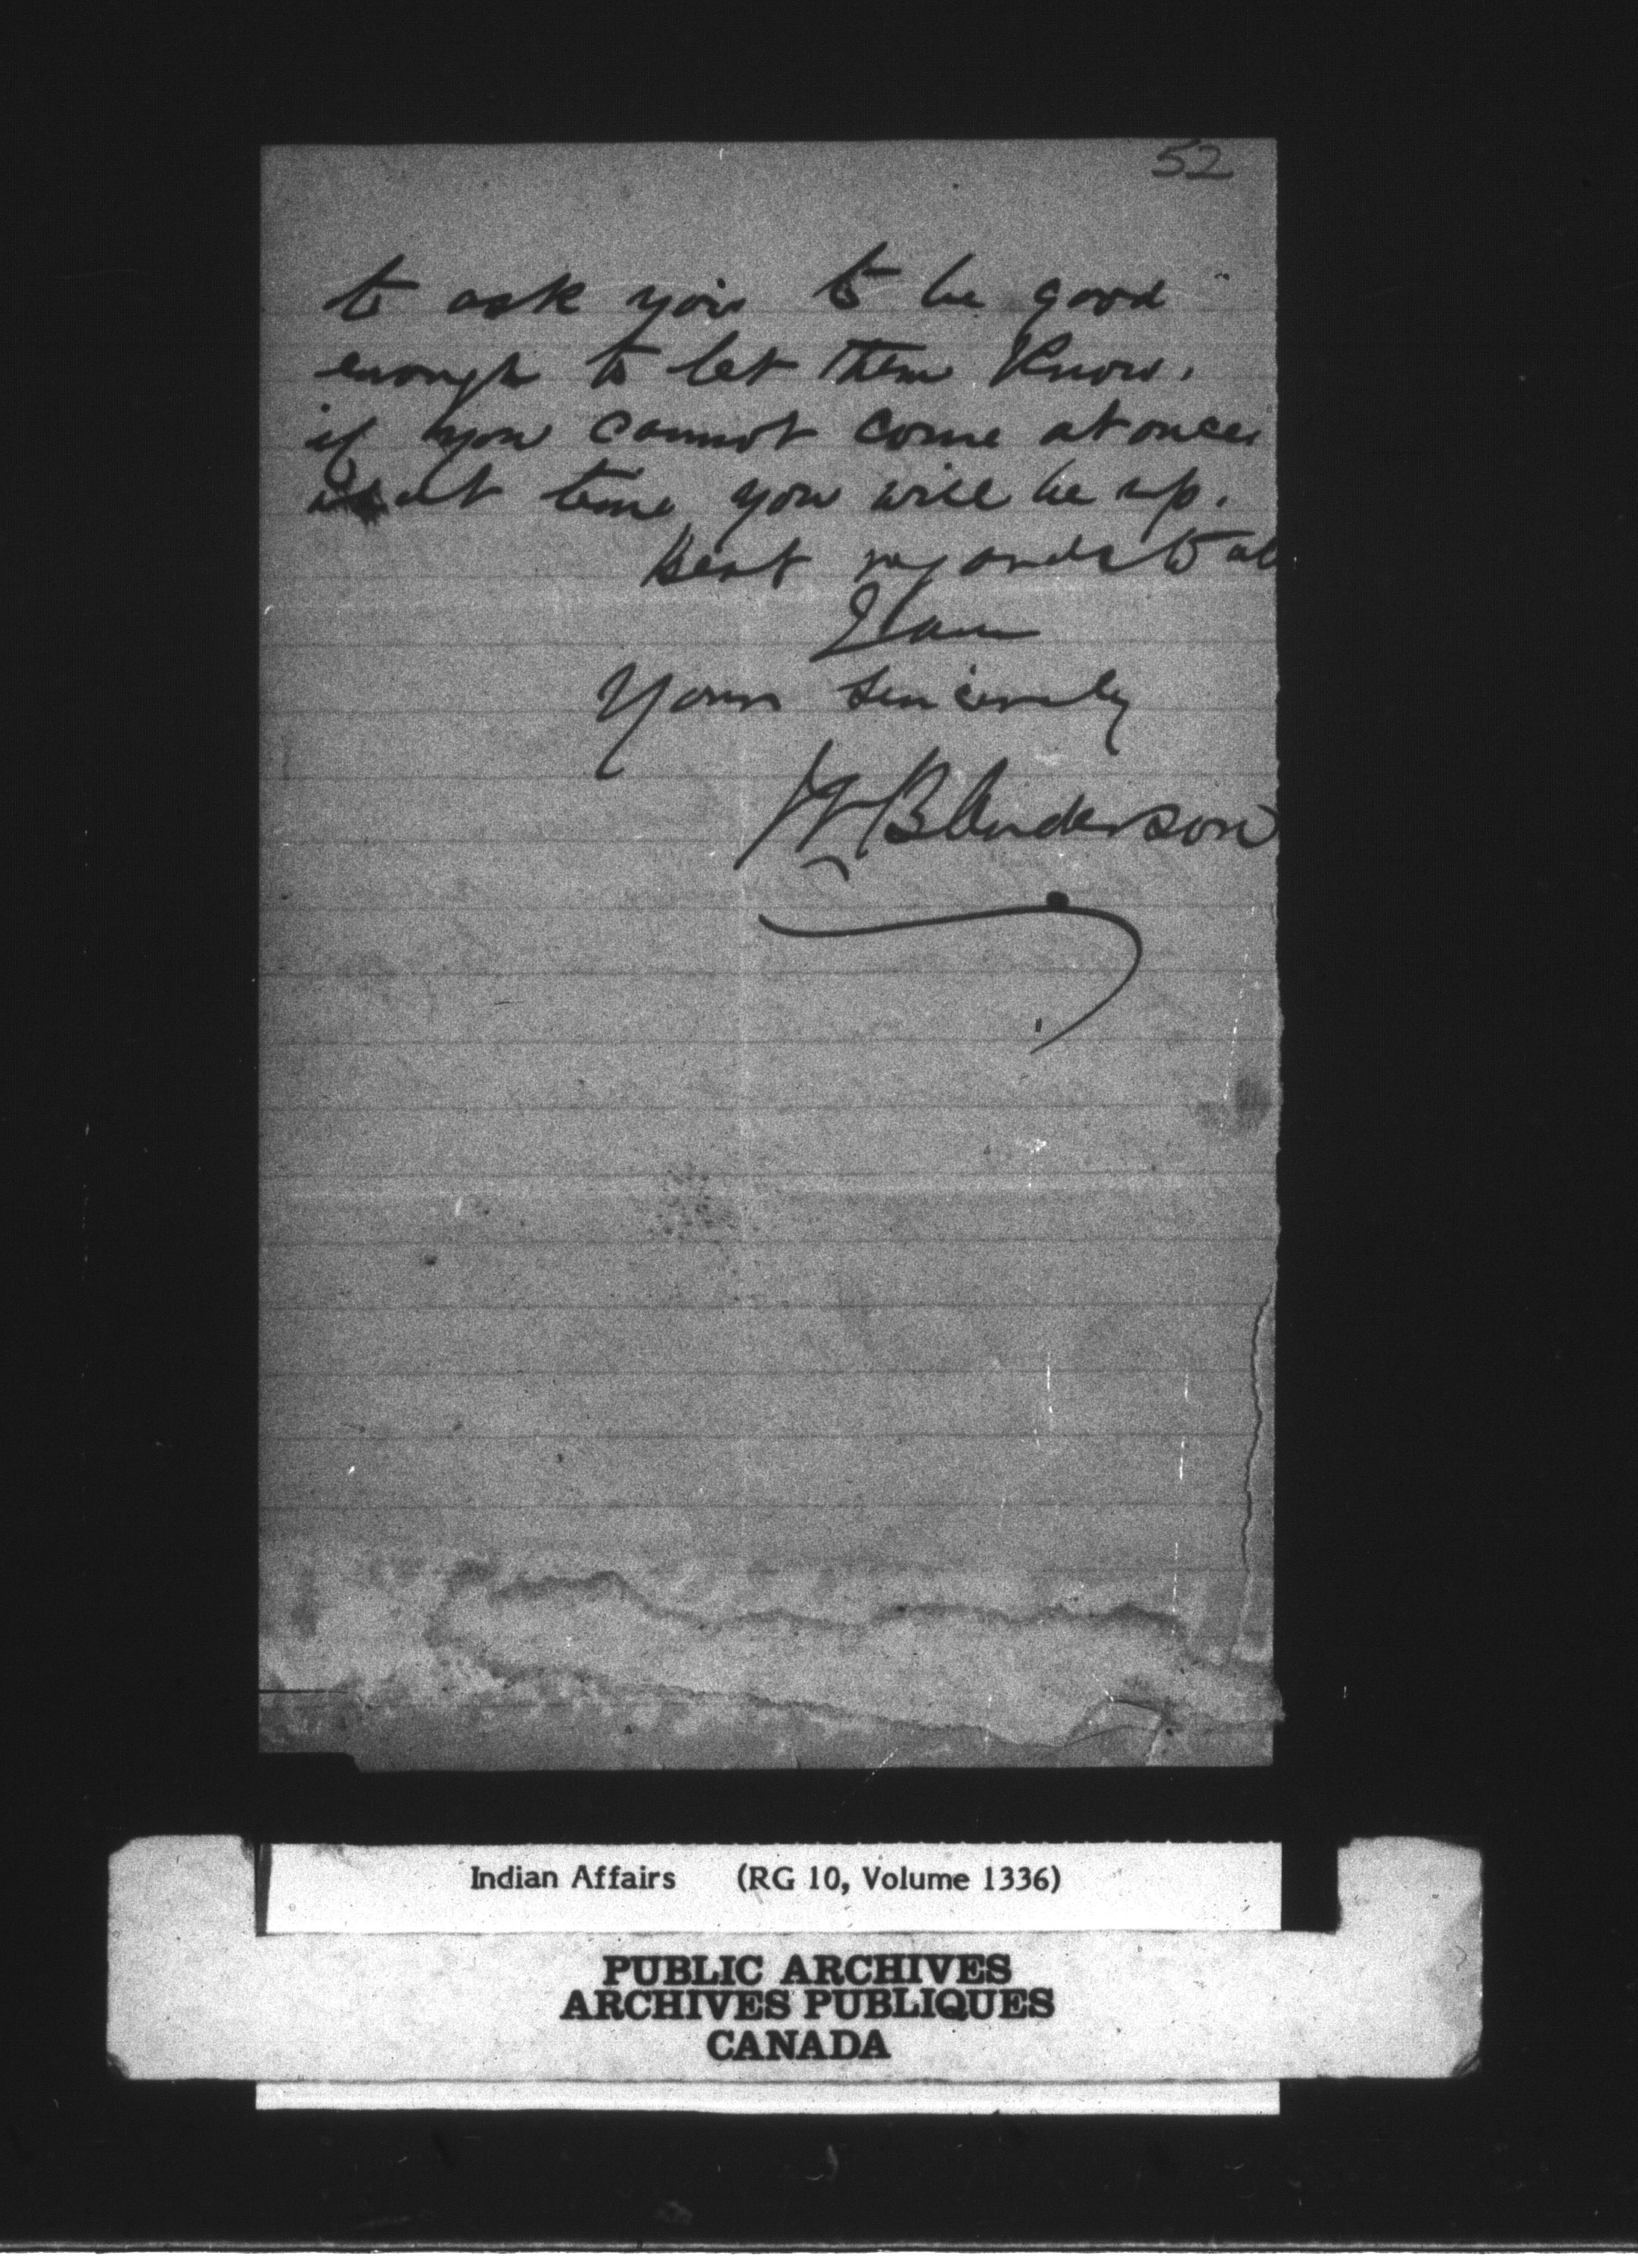 52
to ask you to be good
enough to let them Know,
if you cannot come at once,
what time you will be up.
Best regards to all
I am
Yours sincerely
W B Anderson
Indian Affairs (RG 10, Volume 1336)
PUBLIC ARCHIVES
ARCHIVES PUBLIQUES
CANADA